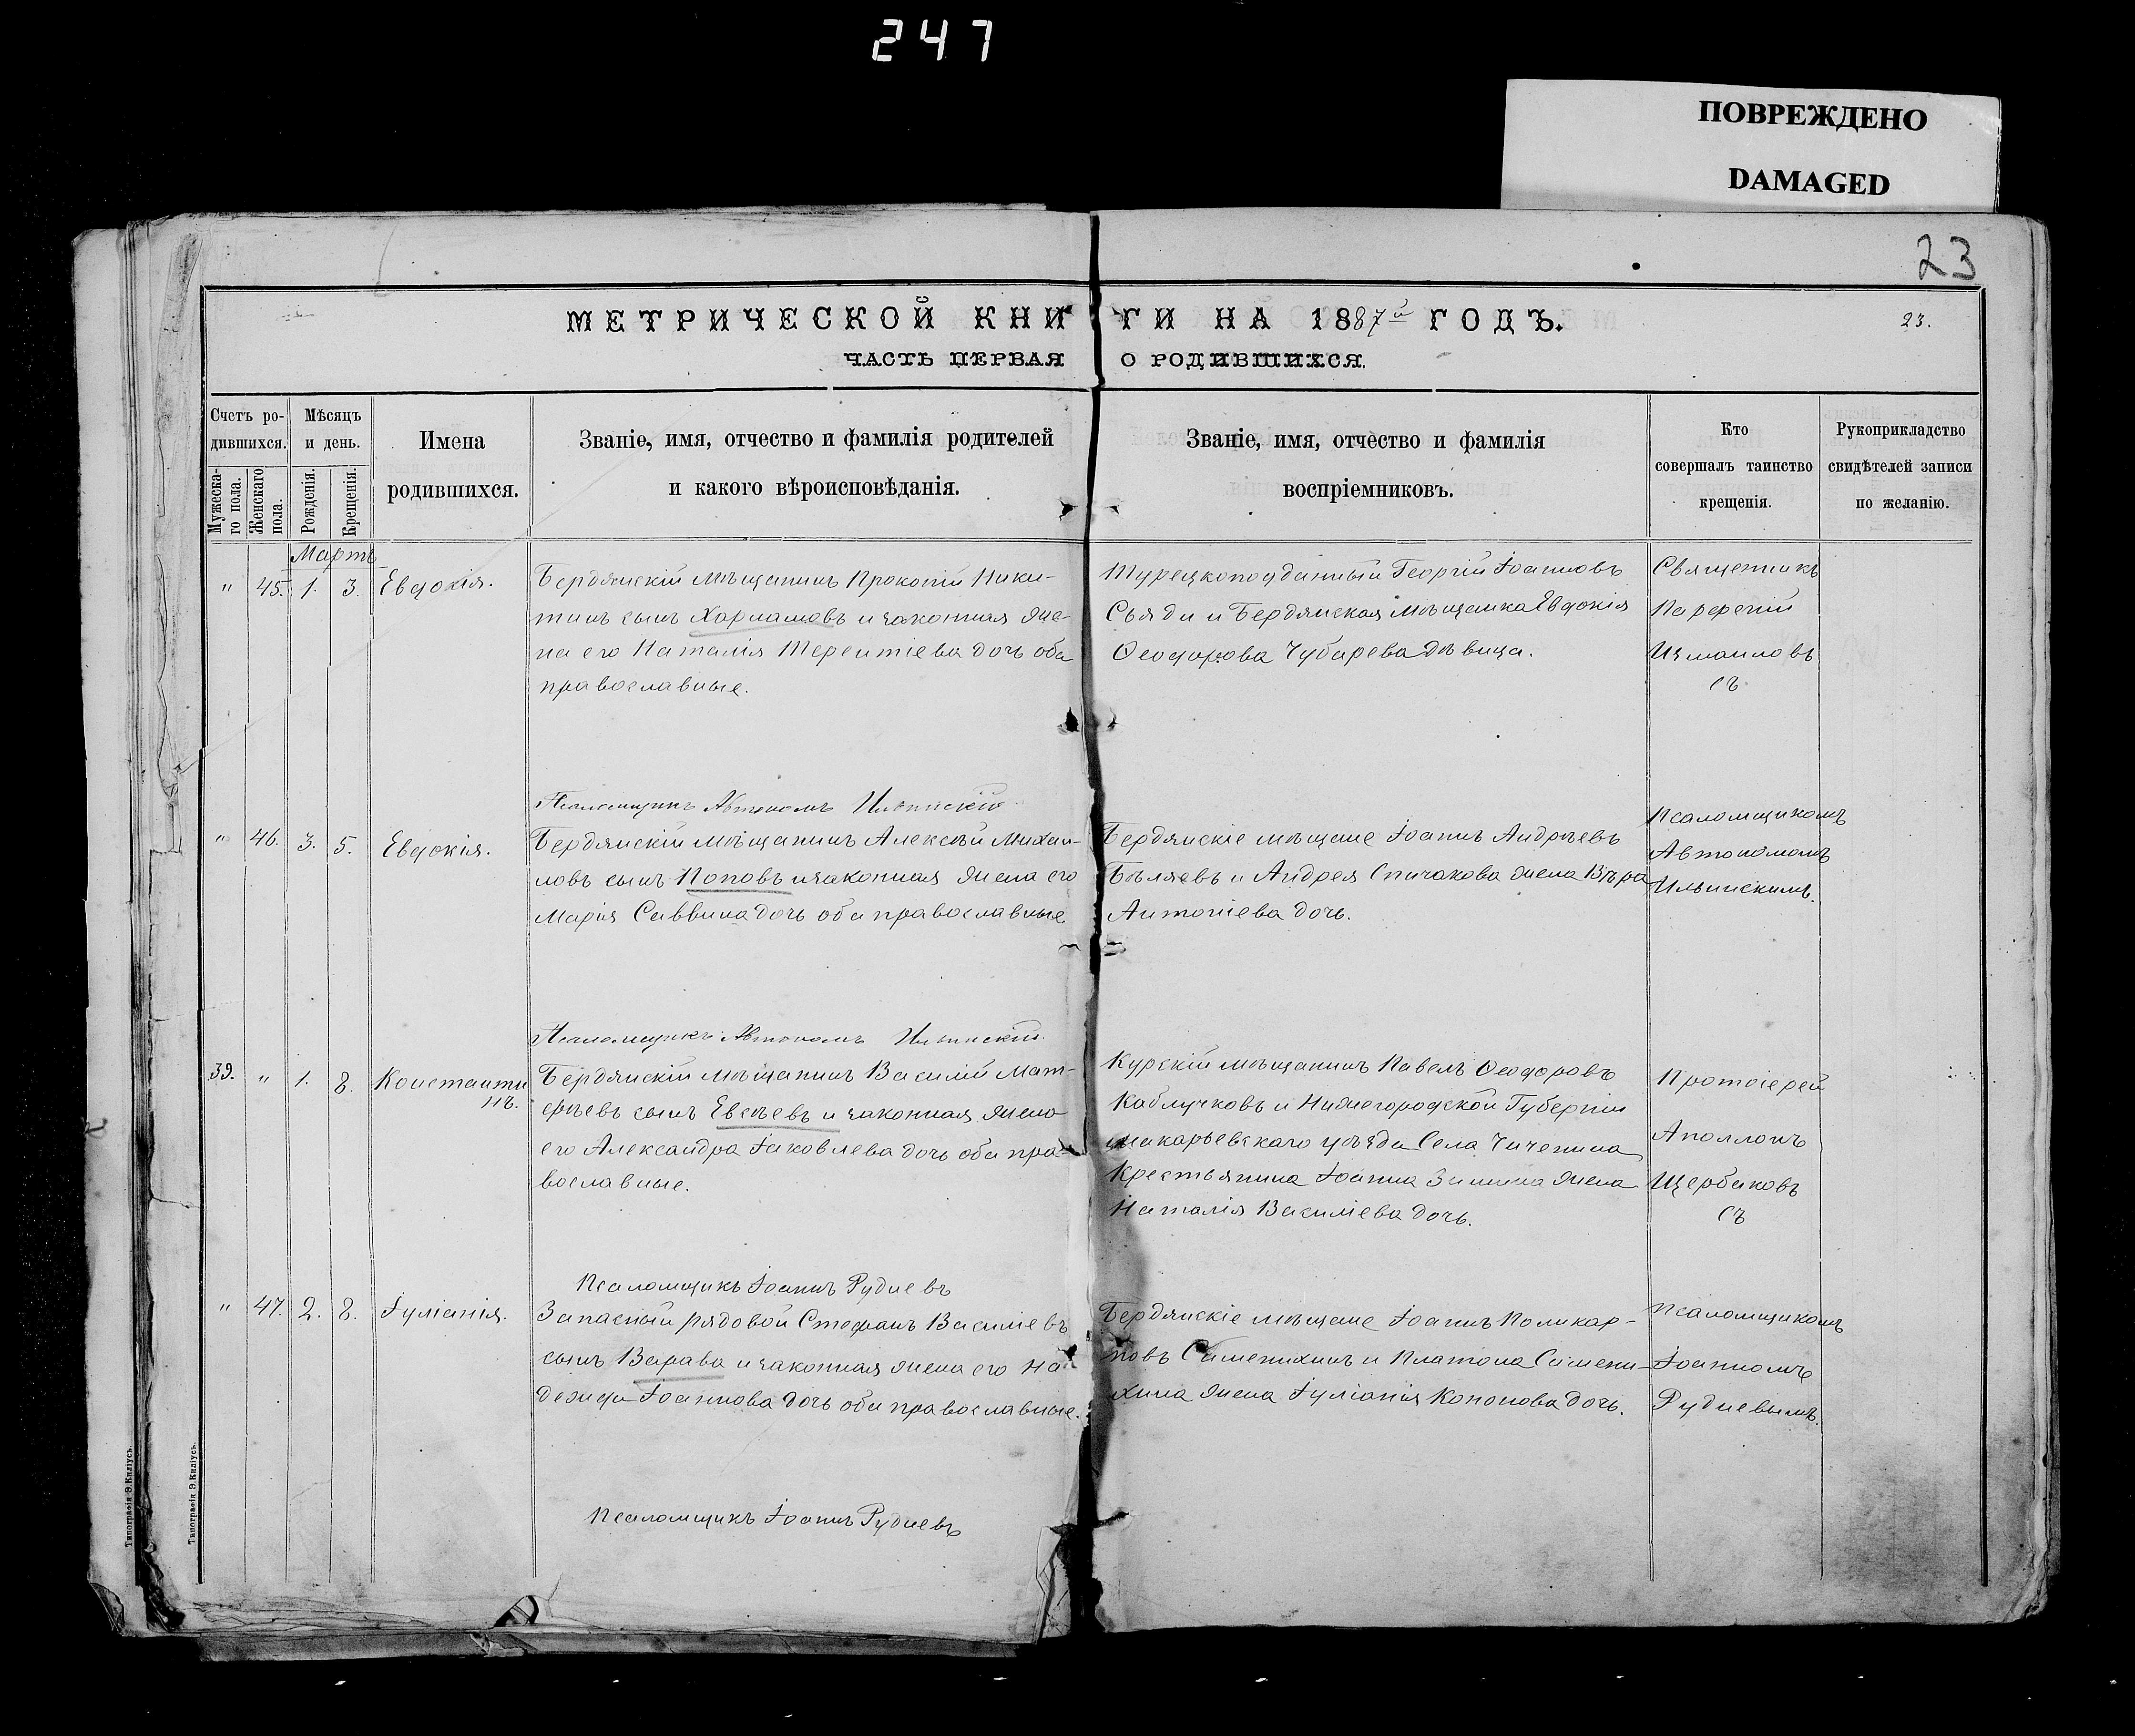 247
ПОВРЕЖДЕНО
DAMAGED
23
МЕТРИЧЕСКОЙ КНИГИ НА 1887й ГОДЪ.
23.
ЧАСТЬ ПЕРВАЯ О РОДИВШИХСЯ.
Счетъ ро-
дившихся.
Мужеска-
го пола.
Женскаго
пола.
Мѣсяцъ
и день.
Рожденія.
Крещенія.
Имена
родившихся.
Званіе, имя, отчество и фамилія родителей
и какого вѣроисповѣданія.
Званіе, имя, отчество и фамилія
воспріемниковъ.
Кто
совершалъ таинство
крещенія.
Рукоприкладство
свидѣтелей записи
по желанію.
Мартъ
" 45. 1. 3. Евдокія.
Бердянскій мѣщанинъ Прокопій Ники-
тинъ сынъ Харламовъ и законная же-
на его Наталія Терентіева дочь оба
православные.
Турецкоподданный Георгій Іоанновъ
и Бердянская мѣщанка Евдокія
Ѳеодорова Чубарева дѣвица.
Священникъ
Парфеній
Измаиловъ
съ
Псаломщикъ Автономъ Ильинскій
" 46. 3. 5. Евдокія.
Бердянскій мѣщанинъ Алексѣй Михаи-
ловъ сынъ Поповъ и законная жена его
Марія Саввина дочь оба православные
Бердянскіе мѣщане Іоаннъ Андреевъ
Бѣляевъ и Андрея Спичакова жена Вѣра
Антоніева дочь.
Псаломщикомъ
Автономомъ
Ильинскимъ.
Псаломщикъ Автономъ Ильинскій.
39. " 1. 8. Константи
нъ.
Бердянскій мѣщанинъ Василій Мат-
фѣевъ сынъ Евсѣевъ и законная жена
его Александра Іаковлева дочь оба пра-
вославные.
Курскій мѣщанинъ Павелъ Ѳеодоровъ
Каблучковъ и Нижегородской Губерніи
макарьевскаго уѣзда Села Чиченина
Крестьянина Іоанна Зимина жена
Наталія Василіева дочь.
Протоіерей
Аполлонъ
Щербаковъ
съ
Псаломщикъ Іоаннъ Рудневъ
" 47. 2. 8. Іуліанія.
Запасный рядовой Стефанъ Василіевъ
сынъ Варава и законная жена его На-
дежда Іоаннова дочь оба православные.
Бердянскіе мѣщане Іоаннъ Поликар-
повъ Саменихинъ и Платона Самени-
хина жена Іуліанія Кононова дочь.
Псаломщикомъ
Іоанномъ
Рудневымъ.
Псаломщикъ Іоаннъ Рудневъ
Типографія Э.Киліусъ.
Типографія Э.Киліусъ.